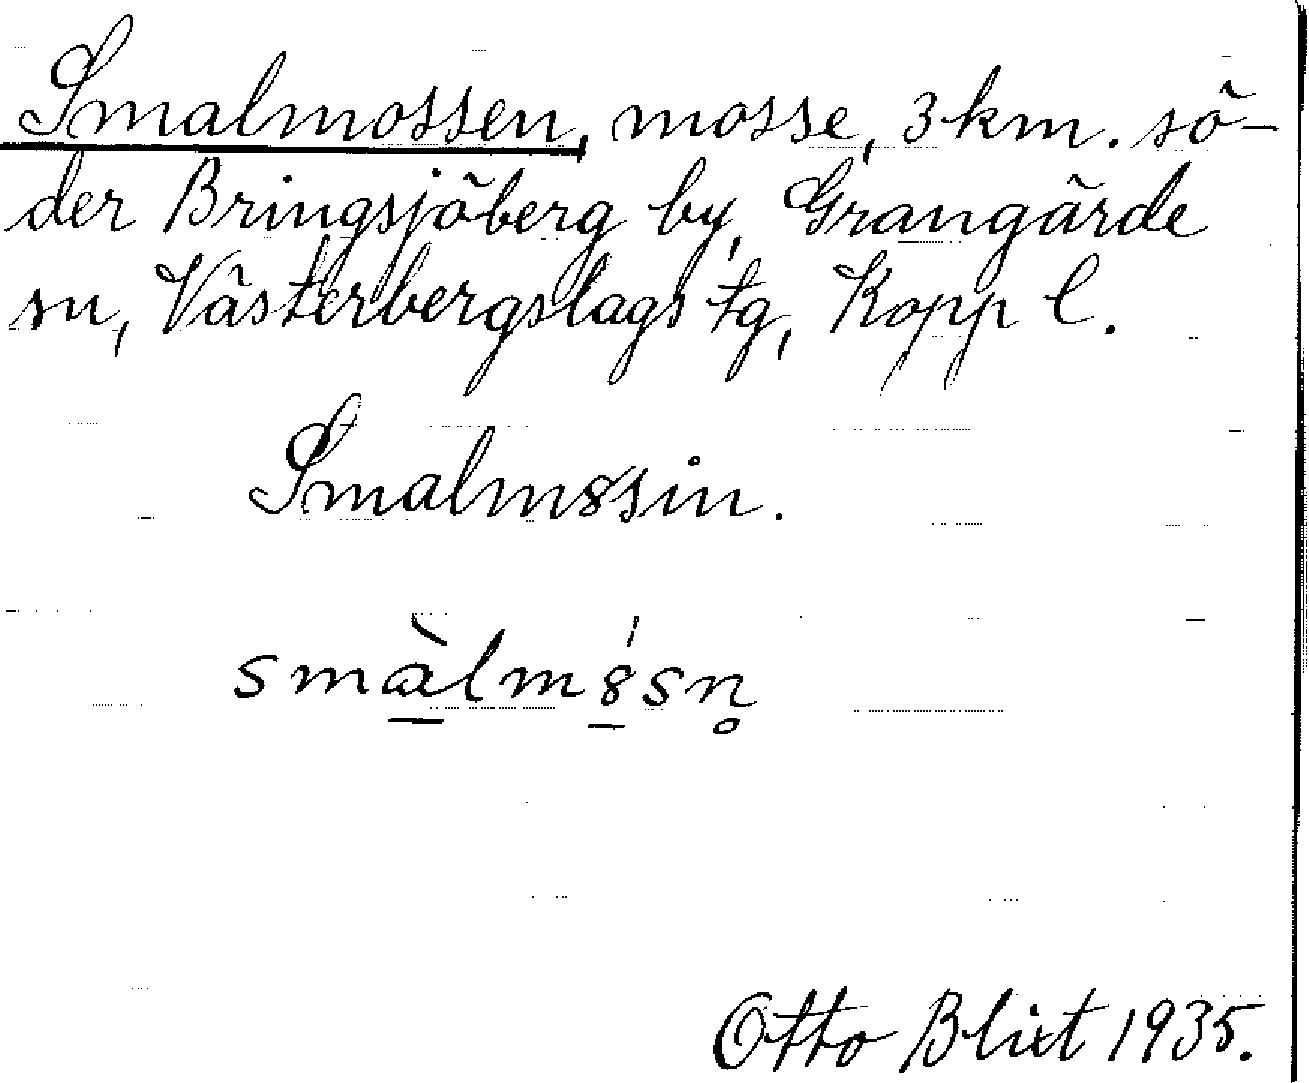 Smalmossen, mosse, 3 km. sö-
der Bringsjöberg by, Grangärde
sn, Västerbergslags tg, Kopp l.
Smalm8sin.
smàlm8́sn̥
Otto Blixt 1935.